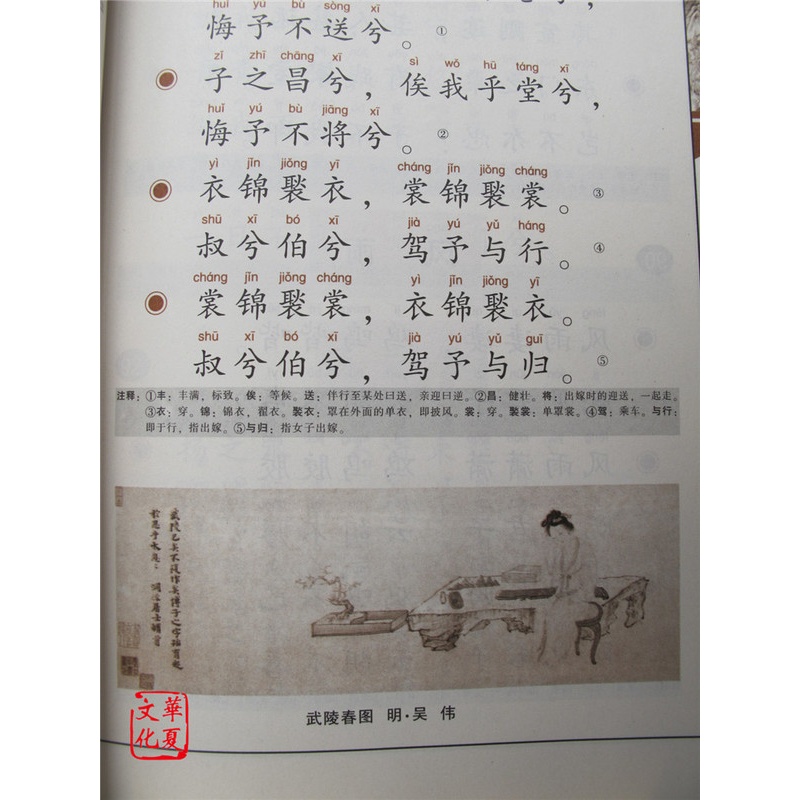 huǐ yú bù sòng xī
悔予不送兮。①
zǐ zhī chāng xī sì wǒ hū táng xī
子之昌兮，俟我乎堂兮，
huǐ yú bù jiāng xī
悔予不将兮。②
yì jǐn jiǒng yī cháng jǐn jiǒng cháng
衣锦褧衣，裳锦褧裳。③
shū xī bó xī jià yú yǔ háng
叔兮伯兮，驾予与行。④
cháng jǐn jiǒng cháng yì jǐn jiǒng yī
裳锦褧裳，衣锦褧衣。
shū xī bó xī jià yú yǔ guī
叔兮伯兮，驾予与归。⑤
注释：①丰：丰满，标致。俟：等候。送：伴行至某处曰送，亲迎曰逆。②昌：健壮。将：出嫁时的迎送，一起走。
③衣：穿。锦：锦衣，翟衣。褧衣：罩在外面的单衣，即披风。裳：穿。褧裳：单罩裳。④驾：乘车。与行：
即于行，指出嫁。⑤与归：指女子出嫁。
武陵春图 明·吴 伟
華夏
文化